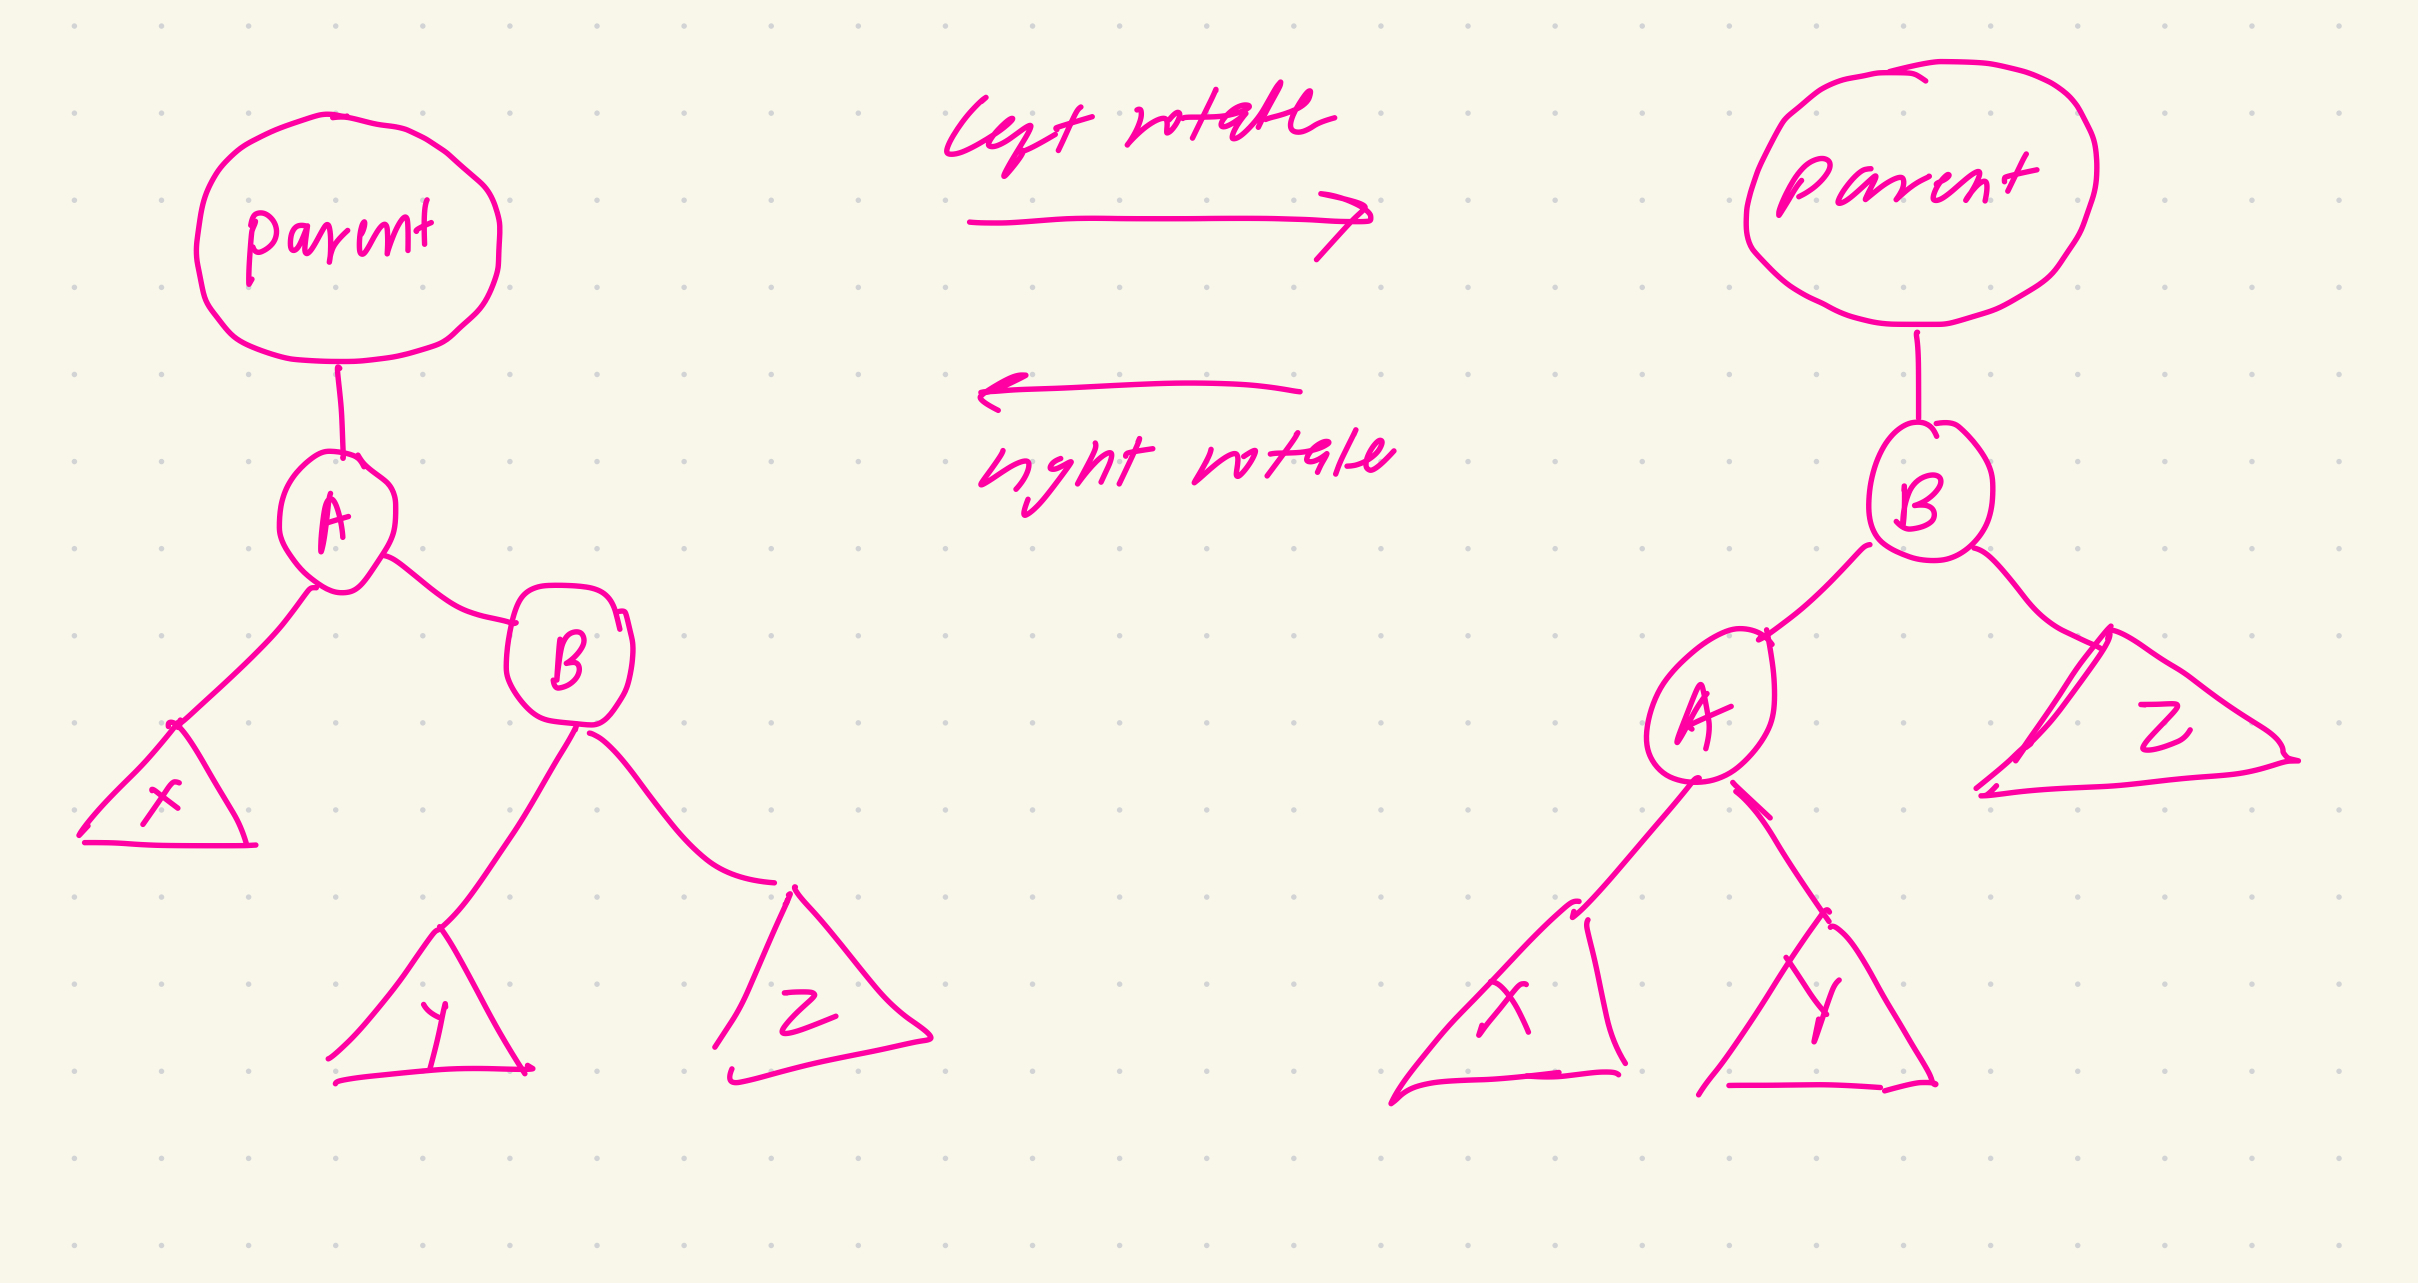 parent
A
B
X
Y
Z
left rotate
right rotate
parent
B
A
Z
X
Y